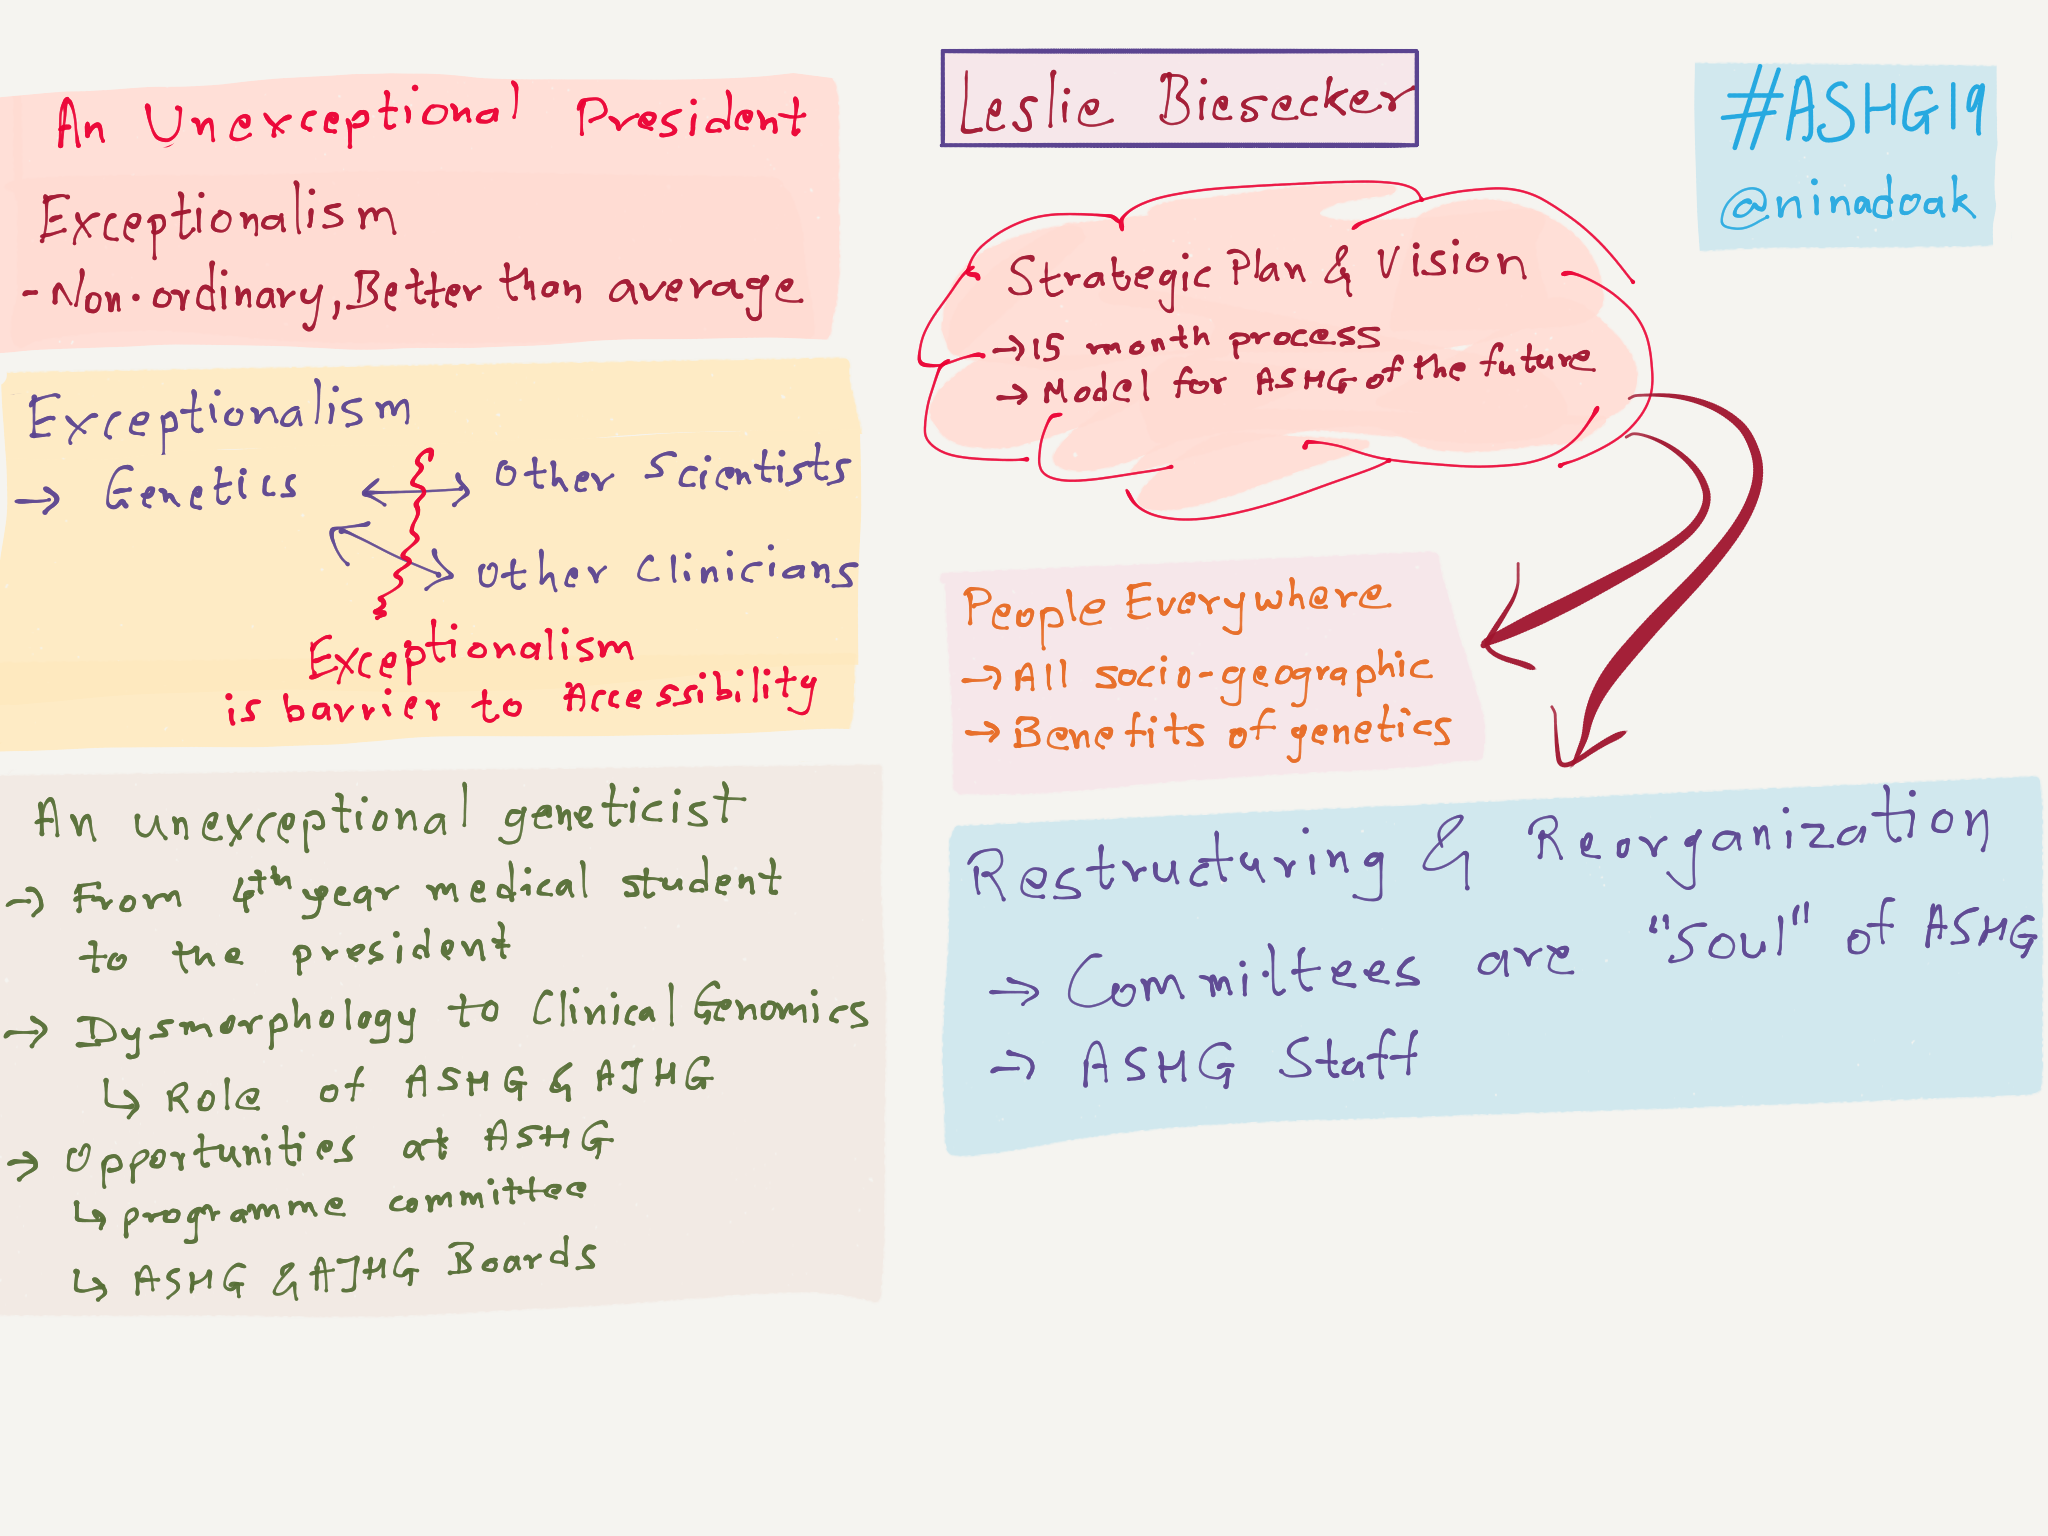 An Unexceptional President
Exceptionalism
- Non-ordinary, Better than average
Exceptionalism
→ Genetics ↔ Other Scientists
↔ Other Clinicians
Exceptionalism
is barrier to Accessibility
An unexceptional geneticist
→ From 4th year medical student
to the president
→ Dysmorphology to Clinical Genomics
↳ Role of ASHG & AJHG
→ Opportunities at ASHG
↳ programme committee
↳ ASHG & AJHG Boards
Leslie Biesecker
Strategic Plan & Vision
→ 15 month process
→ Model for ASHG of the future
People Everywhere
→ All socio-geographic
→ Benefits of genetics
Restructuring & Reorganization
→ Committees are "Soul" of ASHG
→ ASHG Staff
#ASHG19
@ninadoak